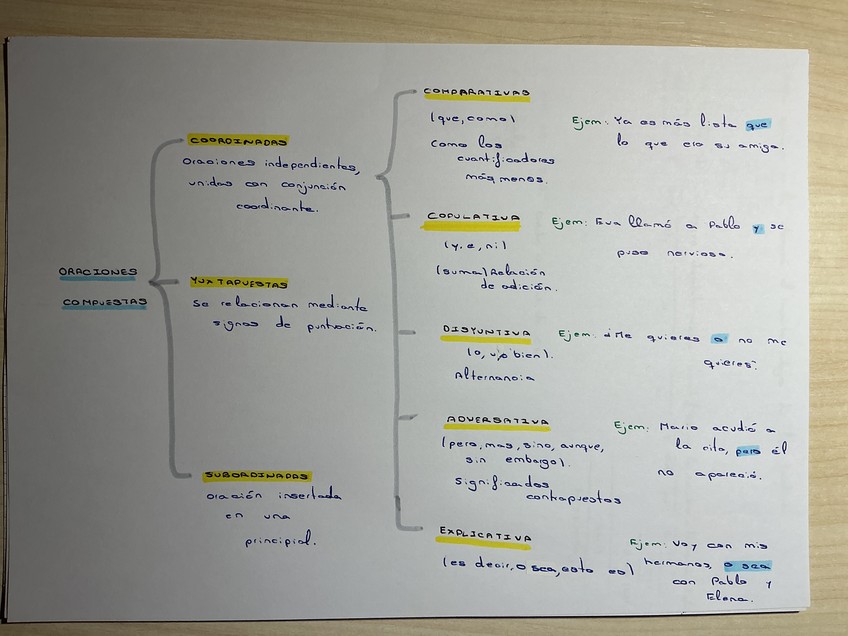 ORACIONES
COMPUESTAS
COORDINADAS
Oraciones independientes,
unidas con conjunción
coordinante.
YUXTAPUESTAS
se relacionan mediante
signos de puntuación.
SUBORDINADAS
oración insertada
en una
principal.
COMPARATIVAS
(que, como)
como los
cuantificadores
más, menos.
Ejem: Ya es más lista que
lo que era su amiga.
COPULATIVA
(y, e, ni)
(suma) Relación
de adición.
Ejem: Eva llamó a Pablo y se
puso nerviosa.
DISYUNTIVA
(o, u, o bien).
Alternancia
Ejem: ¿Me quieres o no me
quieres?
ADVERSATIVA
(pero, mas, sino, aunque,
sin embargo).
significados
contrapuestos
Ejem: Mario acudió a
la cita, pero él
no apareció.
EXPLICATIVA
(es decir, o sea, esto es)
Ejem: Voy con mis
hermanos, o sea
con Pablo y
Elena.